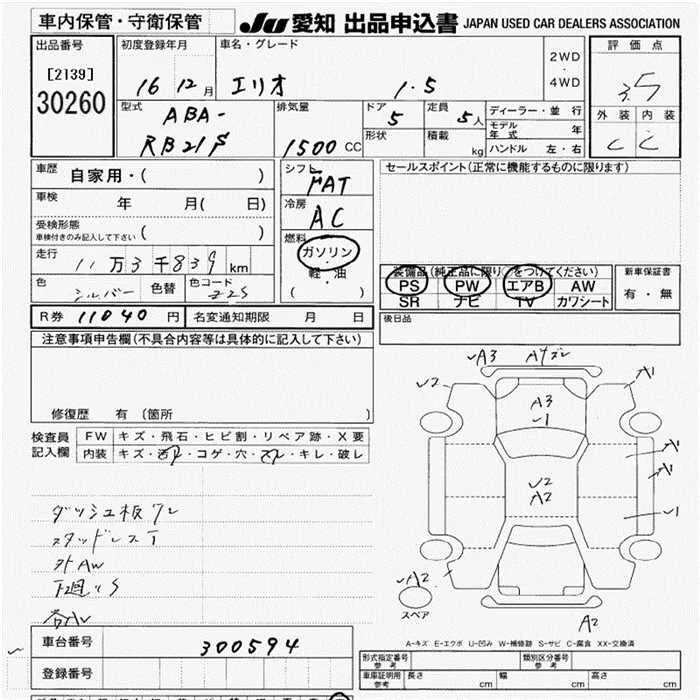 車内保管・守衛保管 JU 愛知 出品申込書 JAPAN USED CAR DEALERS ASSOCIATION
出品番号 初度登録年月 車名・グレード 評価点
[2139] 16 12月 エリオ 1.5 2WD・4WD 3.5
30260
型式 排気量 ドア 定員 ディーラー・並行 外装 内装
ABA- 5 5人 モデル年式 年 C C
RB21S 1500 CC 形状 積載 kg ハンドル 左・右
車歴 自家用・( ) シフト FAT セールスポイント(正常に機能するものに限ります)
車検 年 月(日) 冷房 AC
受検形態
車検付きのみ記入して下さい ( ) 燃料 ガソリン
走行 11万3千839km 軽油 装備品(純正品に限り○をつけてください) 新車保証書
色 シルバー 色替 色コード Z2S ( ) PS PW エアB AW 有・無
SR ナビ TV カワシート
R券 11040円 名変通知期限 月 日 後日品
注意事項申告欄(不具合内容等は具体的に記入して下さい)
A3
A2
A3
A1
1
2
A2
修復歴 有(箇所 )
検査員 FW キズ・飛石・ヒビ割・リペア跡・X要
記入欄 内装 キズ・汚れ・コゲ・穴・スレ・キレ・破レ
ダッシュ板ワレ
スタッドレスT
外AW
下廻りS
A2
スペア
A2
A-キズ E-エクボ U-凹み W-補修跡 S-サビ C-腐食 XX-交換済
車台番号 300594 形式指定番号 参考 類別区分番号 参考
登録番号 車庫証明用 参考 長さ cm 幅 cm 高さ cm